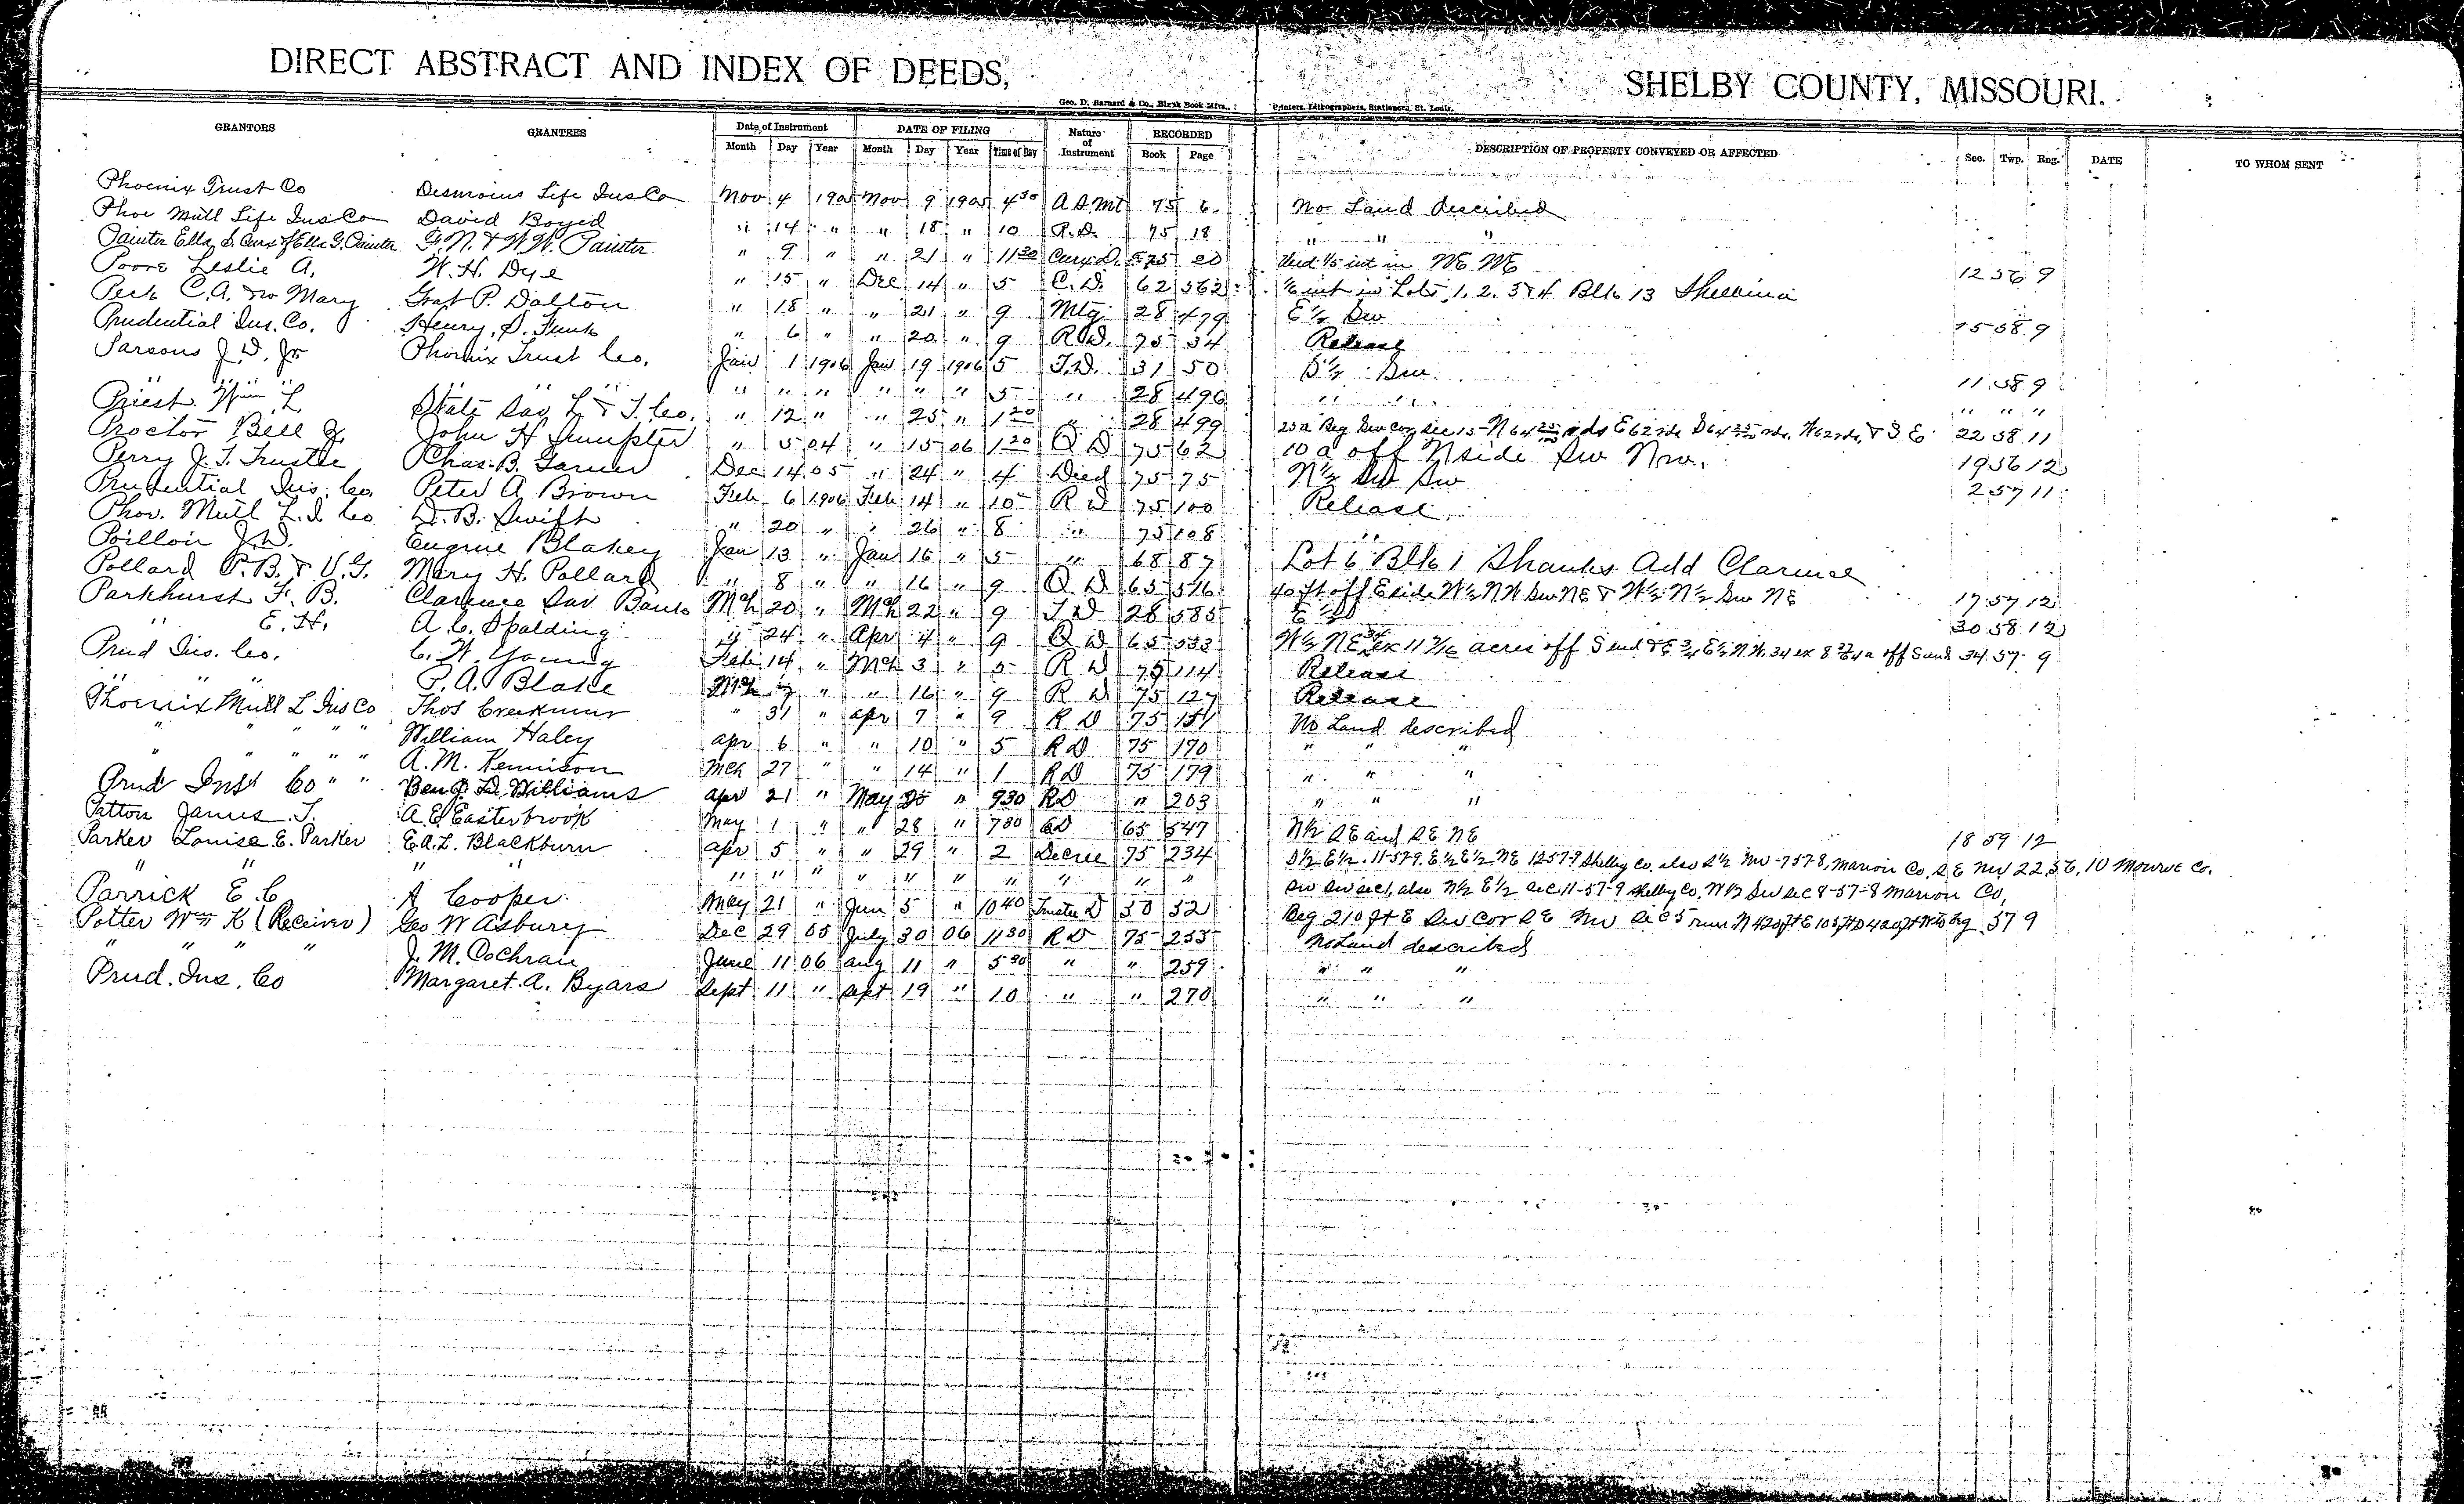 DIRECT ABSTRACT AND INDEX OF DEEDS, SHELBY COUNTY, MISSOURI.
Geo. D. Barnard & Co., Blank Book Mfrs., Printers, Lithographers, Stationers, St. Louis.
GRANTORS GRANTEES Date of Instrument DATE OF FILING Nature of Instrument RECORDED DESCRIPTION OF PROPERTY CONVEYED OR AFFECTED Sec. Twp. Rng. DATE TO WHOM SENT
Month Day Year Month Day Year Time of Day Book Page
Phoenix Trust Co Desmoins Life Ins Co Nov 4 1905 Nov 9 1905 4 30 75 6 No Land described
Phoe Mutl Life Ins Co David Boyed " 14 " " 18 " 10 R.D. 75 18 " " "
Painter Ella S. Curx of Ella G. Painter F.N. & W.W. Painter " 9 " " 21 " 11 30 Curx D. 75 20 Und 1/5 int in NE NE 12 56 9
Poore Leslie A. W. H. Dye " 15 " Dec 14 " 5 C.D. 62 562 1/6 int in Lots 1. 2. 3 & 4 Blk 13 Shelbina
Peck C.A. & w Mary Grat P. Dalton " 18 " " 21 " 9 Mtg 28 479 E 1/2 Sw 15 58 9
Prudential Ins. Co. Henry S. Funk " 6 " " 20 " 9 R D. 75 34 Release
Parsons J. D. Jr Phoenix Trust Co. Jan 1 1906 Jan 19 1906 5 T.D. 31 50 S 1/2 Sw. 11 58 9
" " " " " " " " " " " " 5 " 28 496 " " " " "
Priest Wm L State Sav L & T. Co. " 12 " " 25 " 1 20 " 28 499 25 a Beg Sw cor Sec 15 N 64 25/100 rds E 62 rds S 64 25/100 rds. W 62 rds. & S E 22 58 11
Proctor Bell G. John H Sumpter " 5 04 " 15 06 1 20 Q D 75 62 10 a off N side Sw Nw. 19 56 12
Perry J. T. Trustee Chas. B. Garner Dec 14 05 " 24 " 4 Deed 75 75 N 1/2 Sw Sw 2 57 11
Prudential Ins. Co. Peter A Brown Feb 6 1906 Feb 14 " 10 R D 75 100 Release
Phoe. Mutl L. I. Co D. B. Swift " 20 " " 26 " 8 " 75 108 "
Poillon J.W. Eugene Blakey Jan 13 " Jan 15 " 5 " 68 87 Lot 6 Blk 1 Shanks Add Clarence
Pollard P. B. & V. G. Mary H. Pollard " 8 " " 16 " 9 Q D 65 516 40 ft off E side W 1/2 NW Sw NE & W 1/2 N 1/2 Sw NE 17 57 12
Parkhurst F. B. Clarence Sav Bank Mch 20 " Mch 22 " 9 T D 28 585 E 1/2 30 58 12
" E. H. A. C. Spalding " 24 " Apr 4 " 9 Q D 65 533 W 1/2 NE 34 ex 11 7/16 acres off S end & E 3/4 E 1/2 N W. 34 ex off S end 34 57 9
Prud Ins. Co. C. W. Young Feb 14 " Mch 3 " 5 R D 75 114 Release
" " " P. A. Blake Mch 7 " " 16 " 9 R D 75 127 Release
Phoenix Mutl L Ins Co Thos Creekmur " 31 " Apr 7 " 9 R D 75 151 No Land described
" " " " " William Haley Apr 6 " " 10 " 5 R D 75 170 " " "
" " " " " A. M. Kennison Mch 27 " " 14 " 1 R D 75 179 " " "
Prud Inst Co " " Benj. D. Williams Apr 21 " May 25 " 9 30 R D " 203 " " "
Patton James T. A. E Easterbrook May 1 " " 28 " 7 80 65 547 N 1/2 S E and S E N E 18 59 12
Parker Louisa E. Parker E. A. L. Blackburn Apr 5 " " 29 " 2 Decree 75 234 S 1/2 E 1/2. 11-57-9. E 1/2 E 1/2 NE 12 57-9 Shelby Co. also S 1/2 NW -7 57-8, Marion Co, S E NW 22, 56, 10 Monroe Co.
" " " " " " " " " " " " " " Sw Sw sec 1, also N 1/2 E 1/2 sec 11-57-9 Shelby Co, N 1/2 Sw sec 8-57-8 Marion Co,
Parrick E. C A Cooper May 21 " Jun 5 " 10 40 Trustee D 50 52 Beg 210 ft E Sw Cor S E NW sec 5 runs N 420 ft E 105 ft S 420 ft W to beg. 57 9
Potter Wm K (Receiver) Geo W Asbury Dec 29 05 July 30 06 11 30 R D 75 255 No Land described
" " " " J. M. Cochran June 11 06 Aug 11 " 5 30 " " 259 " " "
Prud. Ins. Co Margaret A. Byars Sept 11 " Sept 19 " 10 " " 270 " " "